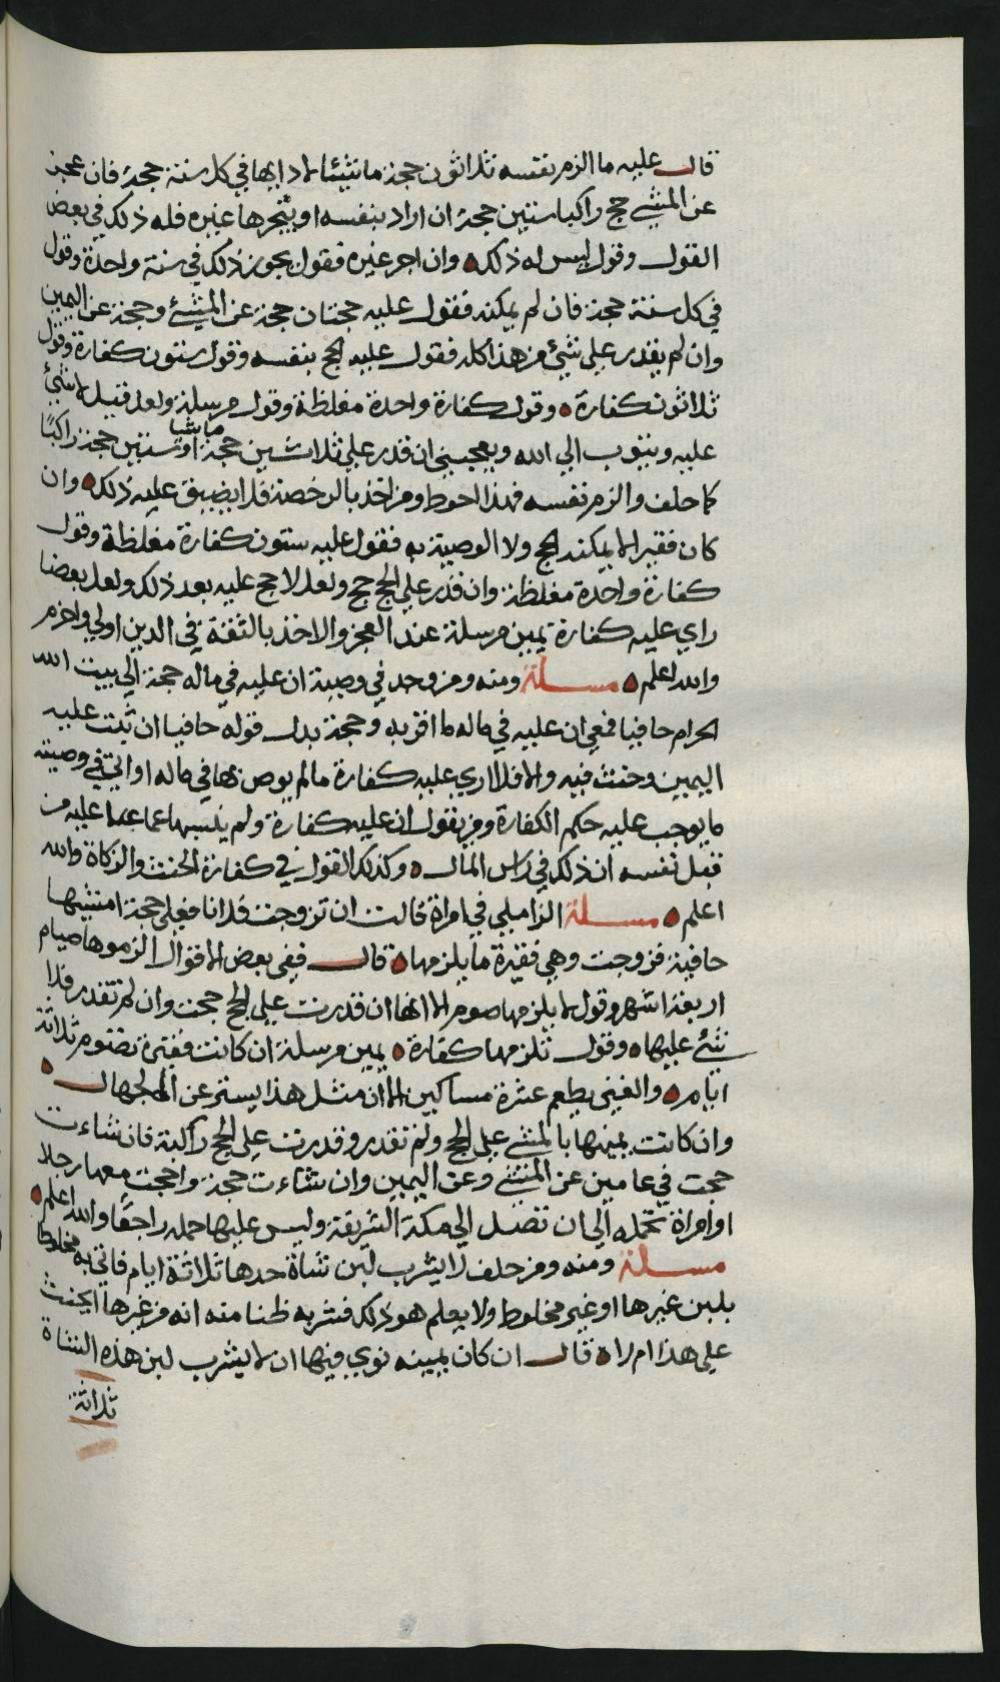 قال عليه ما الزم نفسه ثلاثون حجة ماشيا لادابها في كل سنة حجة فان عجز
عن المشي حج راكبا ستين حجة ان اراد بنفسه او يتجرها غيره فله ذلك في بعض
القول وقول ليس له ذلك وان اجر غيره فقول يجوز ذلك في سنة واحدة وقول
في كل سنة حجة فان لم يمكنه فقول عليه حجتان حجة عن المشي وحجة عن اليمين
وان لم يقدر على شيء من هذا كله فقول عليه الحج بنفسه وقول ستون كفارة وقول
ثلاثون كفارة وقول كفارة واحدة مغلظة وقول مرسلة ولعل قيل لا شيء
عليه ويتوب الي الله ويعجبني ان قدر على ثلاثين حجة ماشيا او ستين حجة راكبا
كما حلف والزم نفسه فهذا احوط ومن اخذ بالرخصة فلا يضيق عليه ذلك وان
كان فقيرا لا يمكنه الحج ولا الوصية به فقول عليه ستون كفارة مغلظة وقول
كفارة واحدة مغلظة وان قدر على الحج حج ولعل لا حج عليه بعد ذلك ولعل بعضا
راي عليه كفارة يمين مرسلة عند العجز والاخذ بالثقة في الدين اولي واحزم
والله اعلم مسلة ومنه ومن وجد في وصية ان عليه في ماله حجة الي بيت الله
الحرام حافيا فمعي ان عليه في ماله ما اقر به وحجة بدل قوله حافيا ان ثبت عليه
اليمين وحنث فيه والا فلا اري عليه كفارة ما لم يوص بها في ماله او اتي في وصيته
ما يوجب عليه حكم الكفارة ومن يقول ان عليه كفارة ولم ينسبها عما عليه من
قبل نفسه ان ذلك في راس المال وكذلك القول في كفارة الحنث والزكاة والله
اعلم مسلة الزاملي في امراة قالت ان تزوجت فلانا فعلي حجة امشيها
حافية فزوجت وهي فقيرة ما يلزمها قال ففي بعض الاقوال الزموها صيام
اربعة اشهر وقول لا يلزمها صوم الا انها ان قدرت على الحج حجت وان لم تقدر فلا
شيء عليها وقول تلزمها كفارة يمين مرسلة ان كانت فقيرة تصوم ثلاثة
ايام والغني يطعم عشرة مساكين الا ان مثل هذا يستر عن الجهال
وان كانت يمينها بالمشي على الحج ولم تقدر وقدرت على الحج راكبة فان شاءت
حجت في عامين عن المشي وعن اليمين وان شاءت حجة واحجت معها رجلا
او امراة تحمله الي ان تصل الي مكة الشريفة وليس عليها حمله راجعا والله اعلم
مسلة ومنه ومن حلف لا يشرب لبن شاة حدها ثلاثة ايام فاتي به مخلوطا
بلبن غيرها او غير مخلوط ولا يعلم هو ذلك فشربه ظنا منه انه من غيرها ايحنث
على هذا ام لا قال ان كان يمينه نوي فيها ان لا يشرب لبن هذه الشاة
ثلاثة